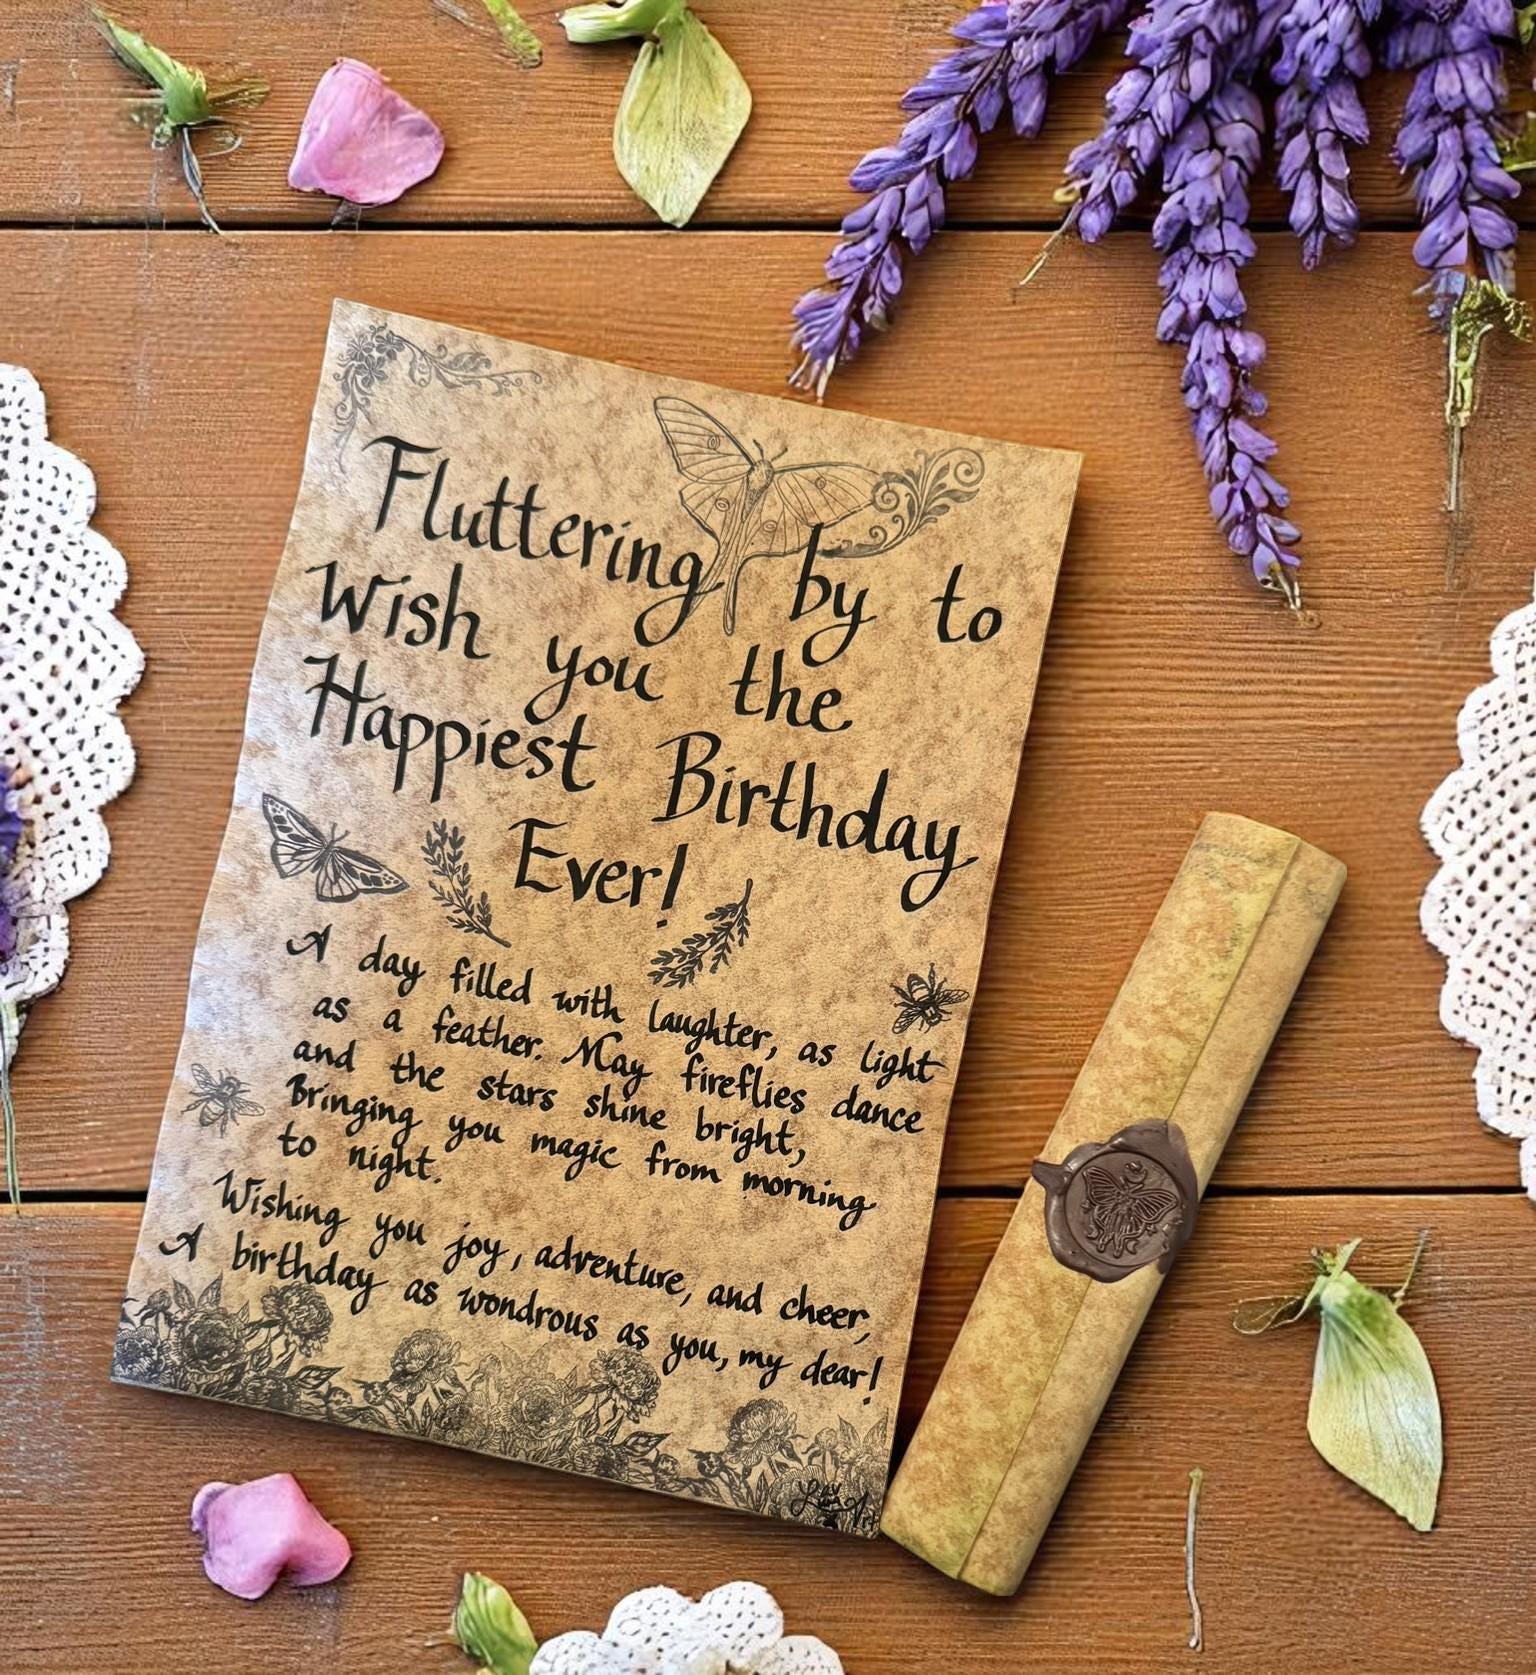 Fluttering by to
Wish you the
Happiest Birthday
Ever!
A day filled with laughter, as light
as a feather. May fireflies dance
and the stars shine bright,
Bringing you magic from morning
to night.
Wishing you joy, adventure, and cheer,
A birthday as wondrous as you, my dear!